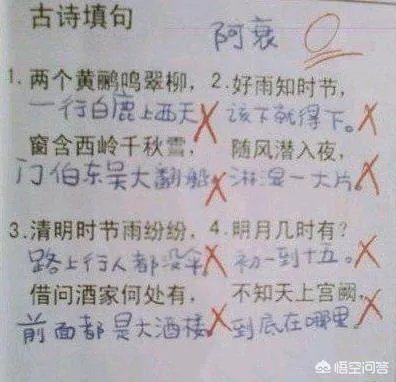 古诗填句
阿衰 0
1. 两个黄鹂鸣翠柳， 2. 好雨知时节，
一行白鹿上西天 该下就得下。
窗含西岭千秋雪， 随风潜入夜，
门伯东吴大翻船 淋湿一大片。
3. 清明时节雨纷纷， 4. 明月几时有？
路上行人都没伞 初一到十五。
借问酒家何处有， 不知天上宫阙，
前面都是大酒楼 到底在哪里
悟空问答